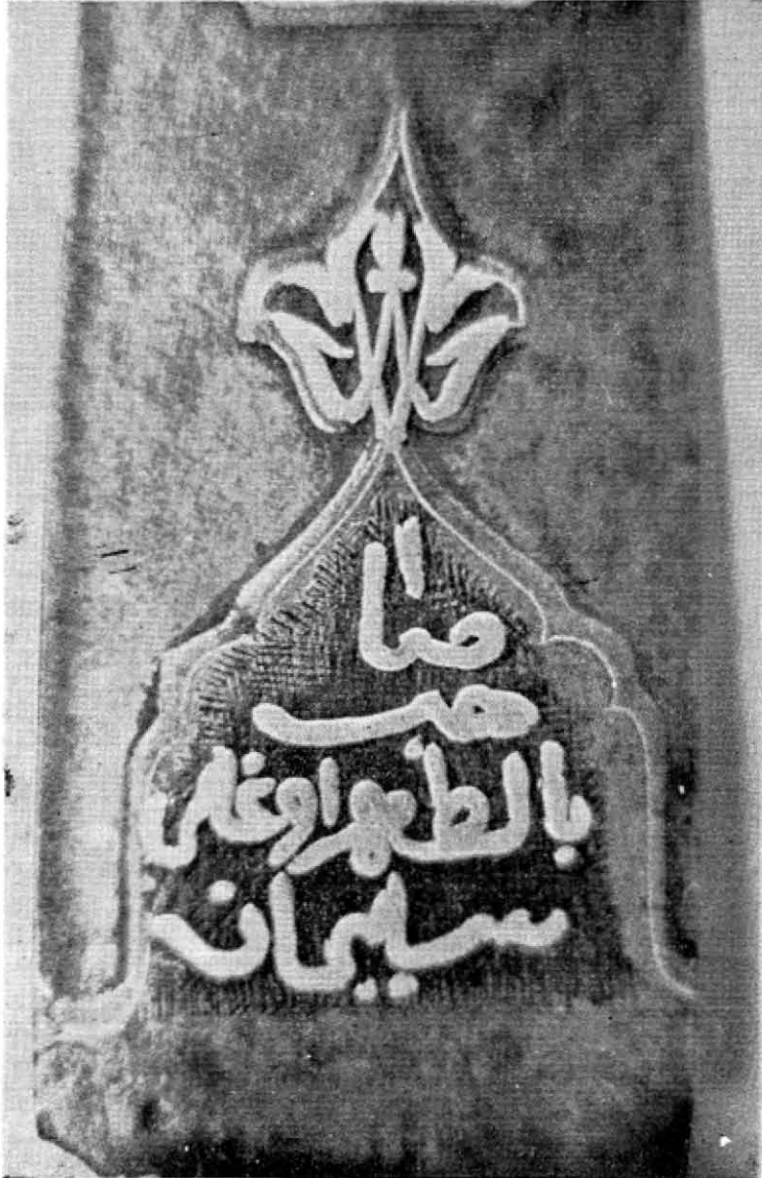 صاحب
بالطه اوغلي
سليمان